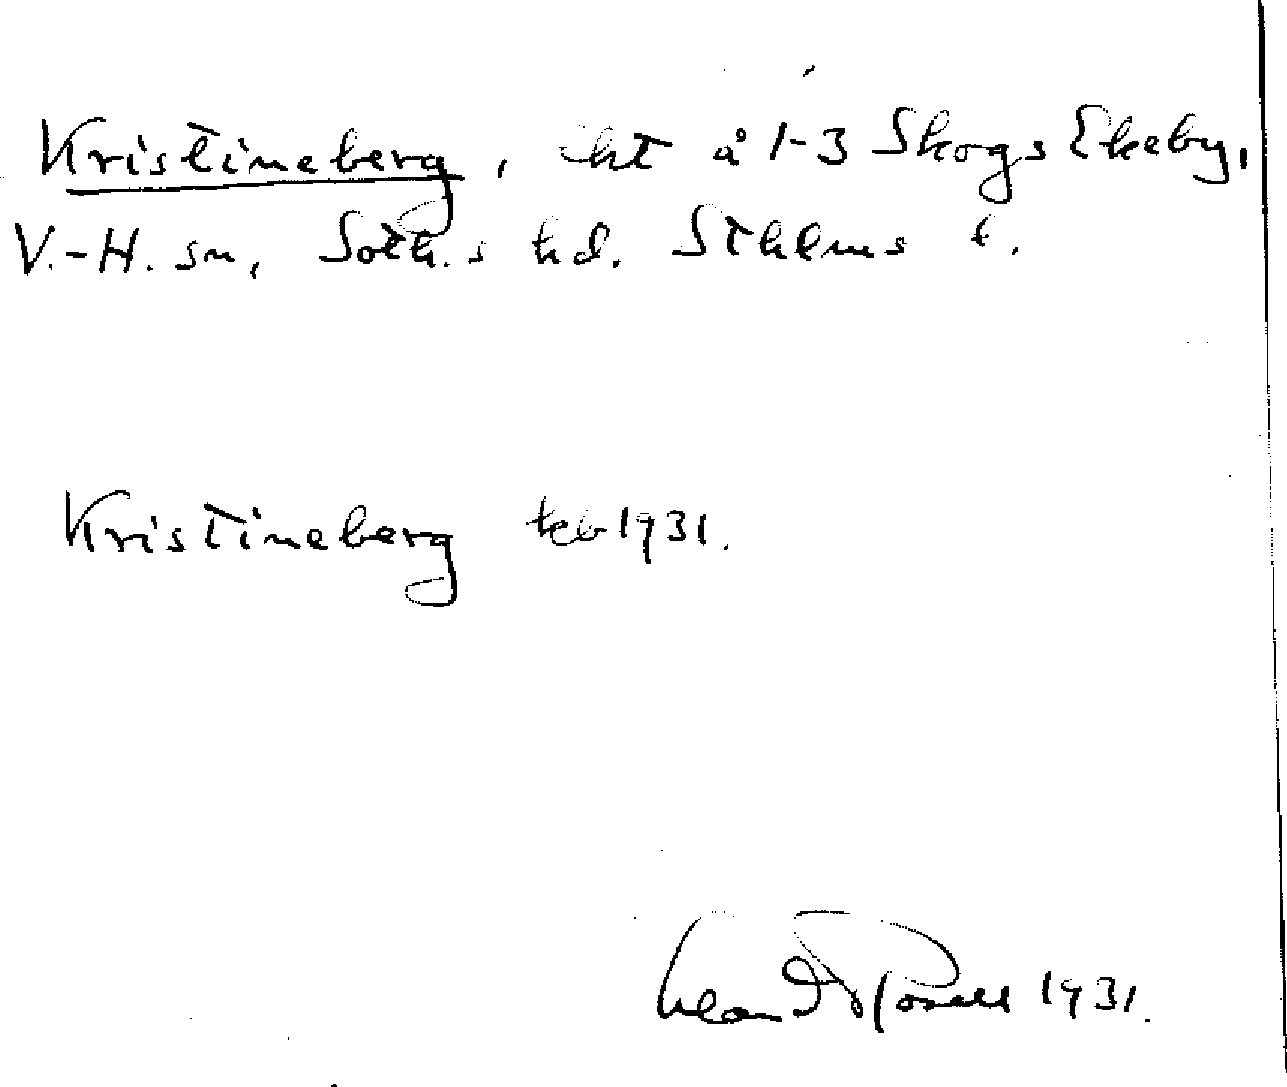 Kristineberg, å 1-3 Skogs Ekeby,
V.-H. sn, Soth.s hd. Sthlms l.
Kristineberg 1931.
1931.